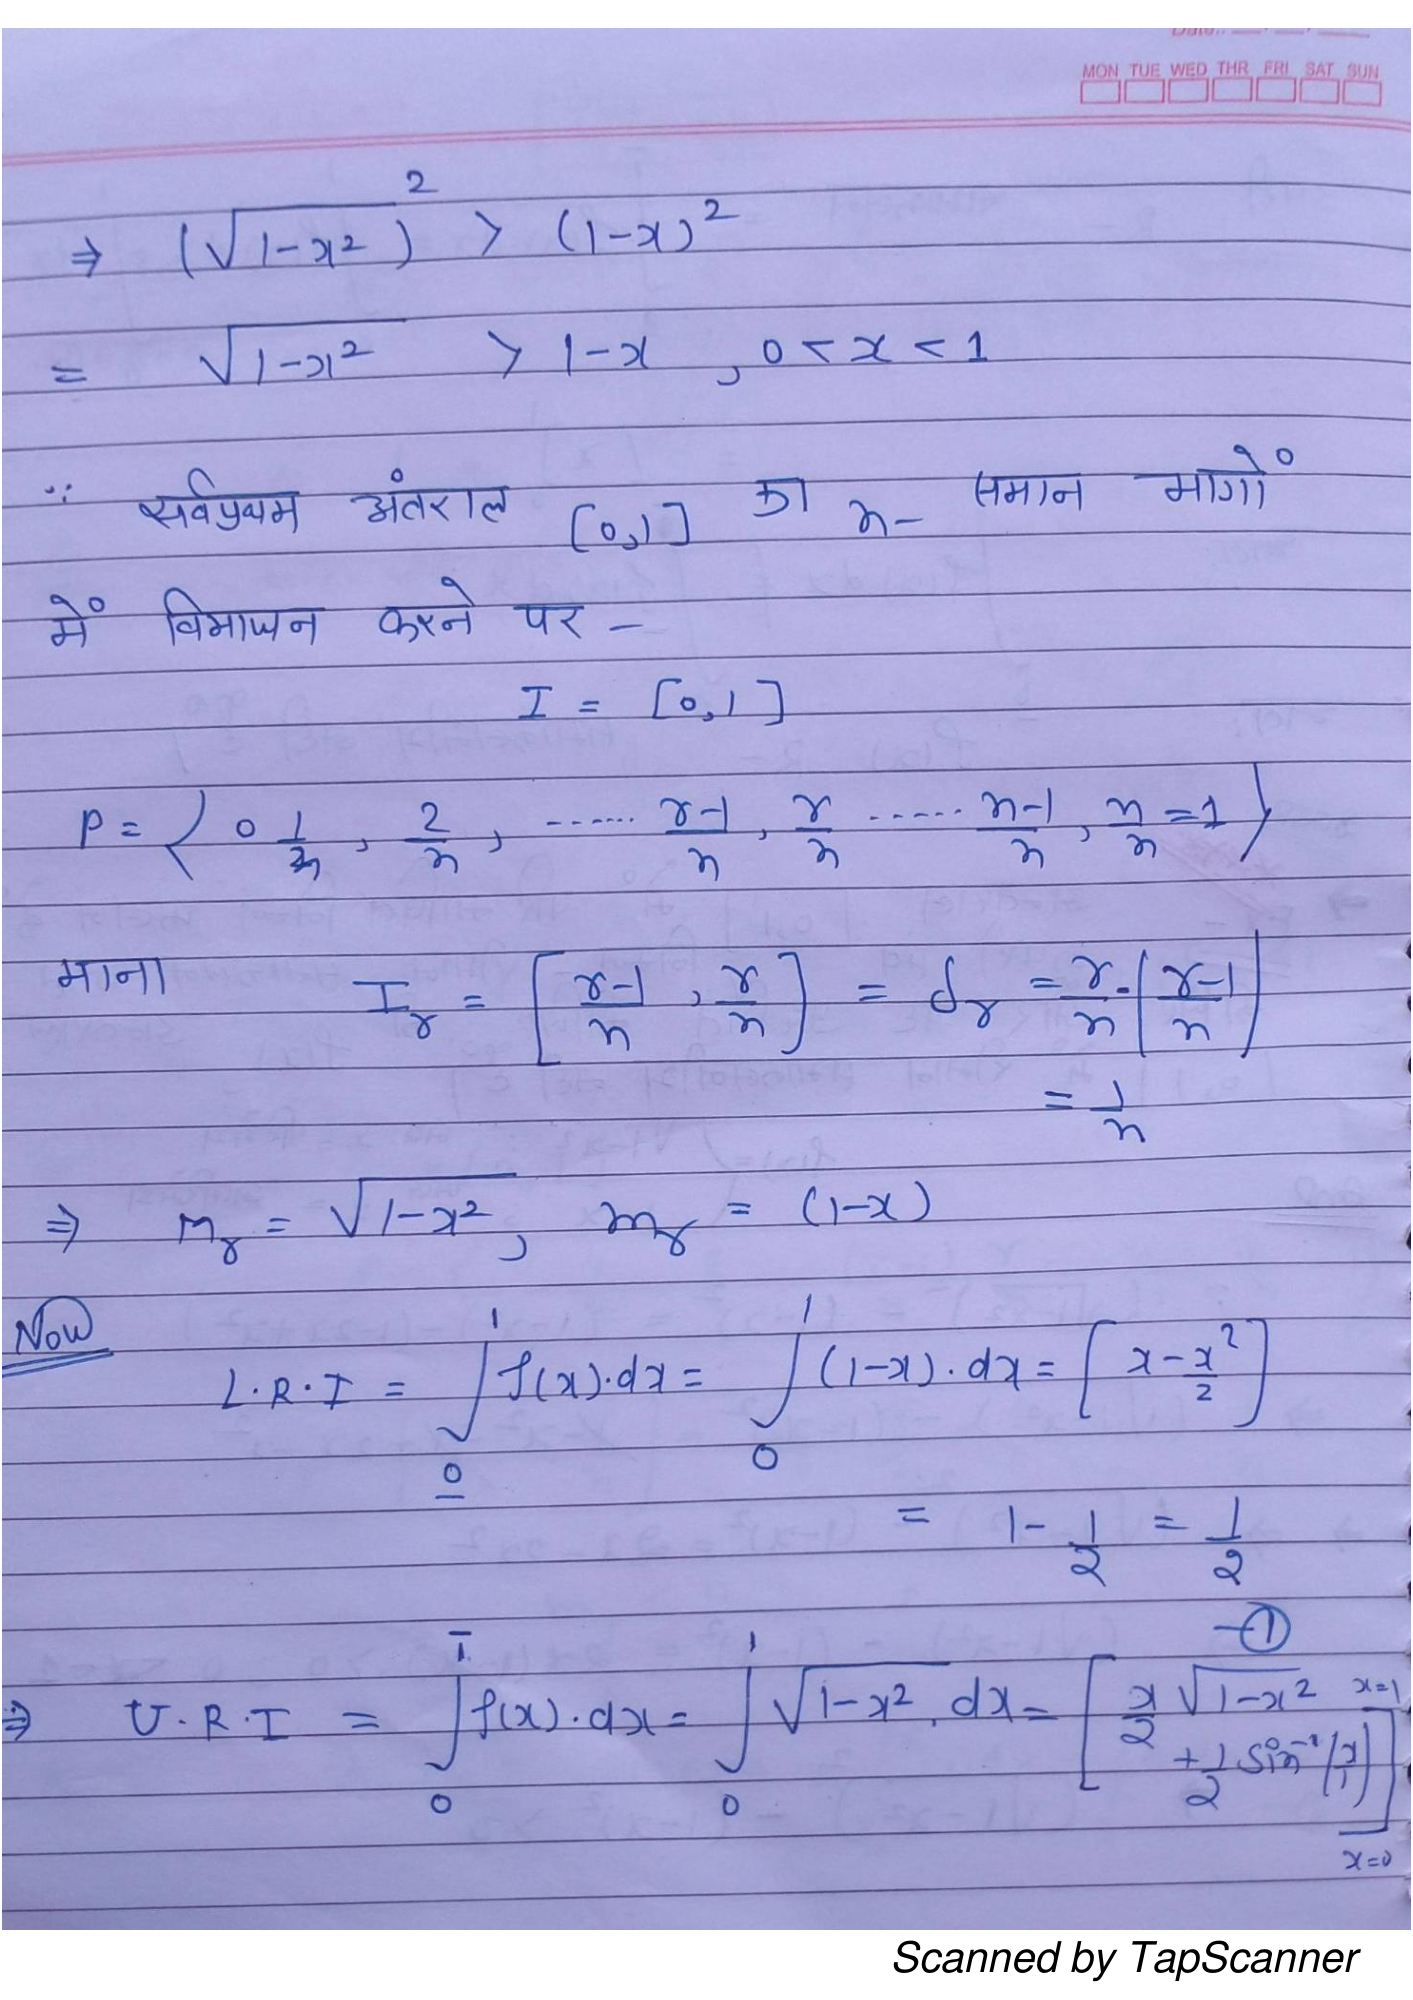 Date:
MON TUE WED THR FRI SAT SUN
⇒ (√1-x²)² > (1-x)²
= √1-x² > 1-x , 0 < x < 1
∵ सर्वप्रथम अंतराल [0,1] का n- समान भागों
में विभाजन करने पर -
I = [0,1]
P = { 0 1/n, 2/n, ...... r-1/n, r/n ...... n-1/n, n/n = 1 }
माना I_r = [r-1/n, r/n] = δ_r = r/n - (r-1/n)
= 1/n
⇒ M_r = √1-x², m_r = (1-x)
Now
L.R.I = ∫_0^1 f(x).dx = ∫_0^1 (1-x).dx = [x - x²/2]
= 1 - 1/2 = 1/2
-①
⇒ U.R.I = ∫_0^1 f(x).dx = ∫_0^1 √1-x² . dx = [x/2 √1-x² + 1/2 sin⁻¹(x/1)]_{x=0}^{x=1}
Scanned by TapScanner